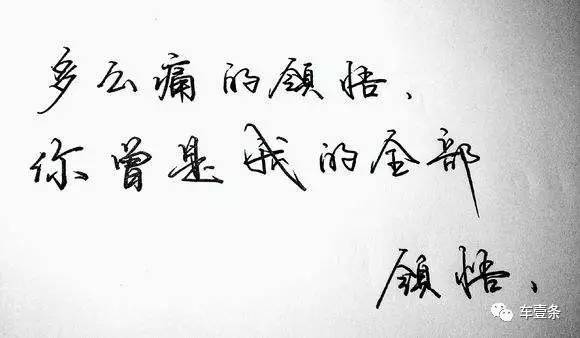 多么痛的領悟、
你曾是我的全部
領悟、
车壹条